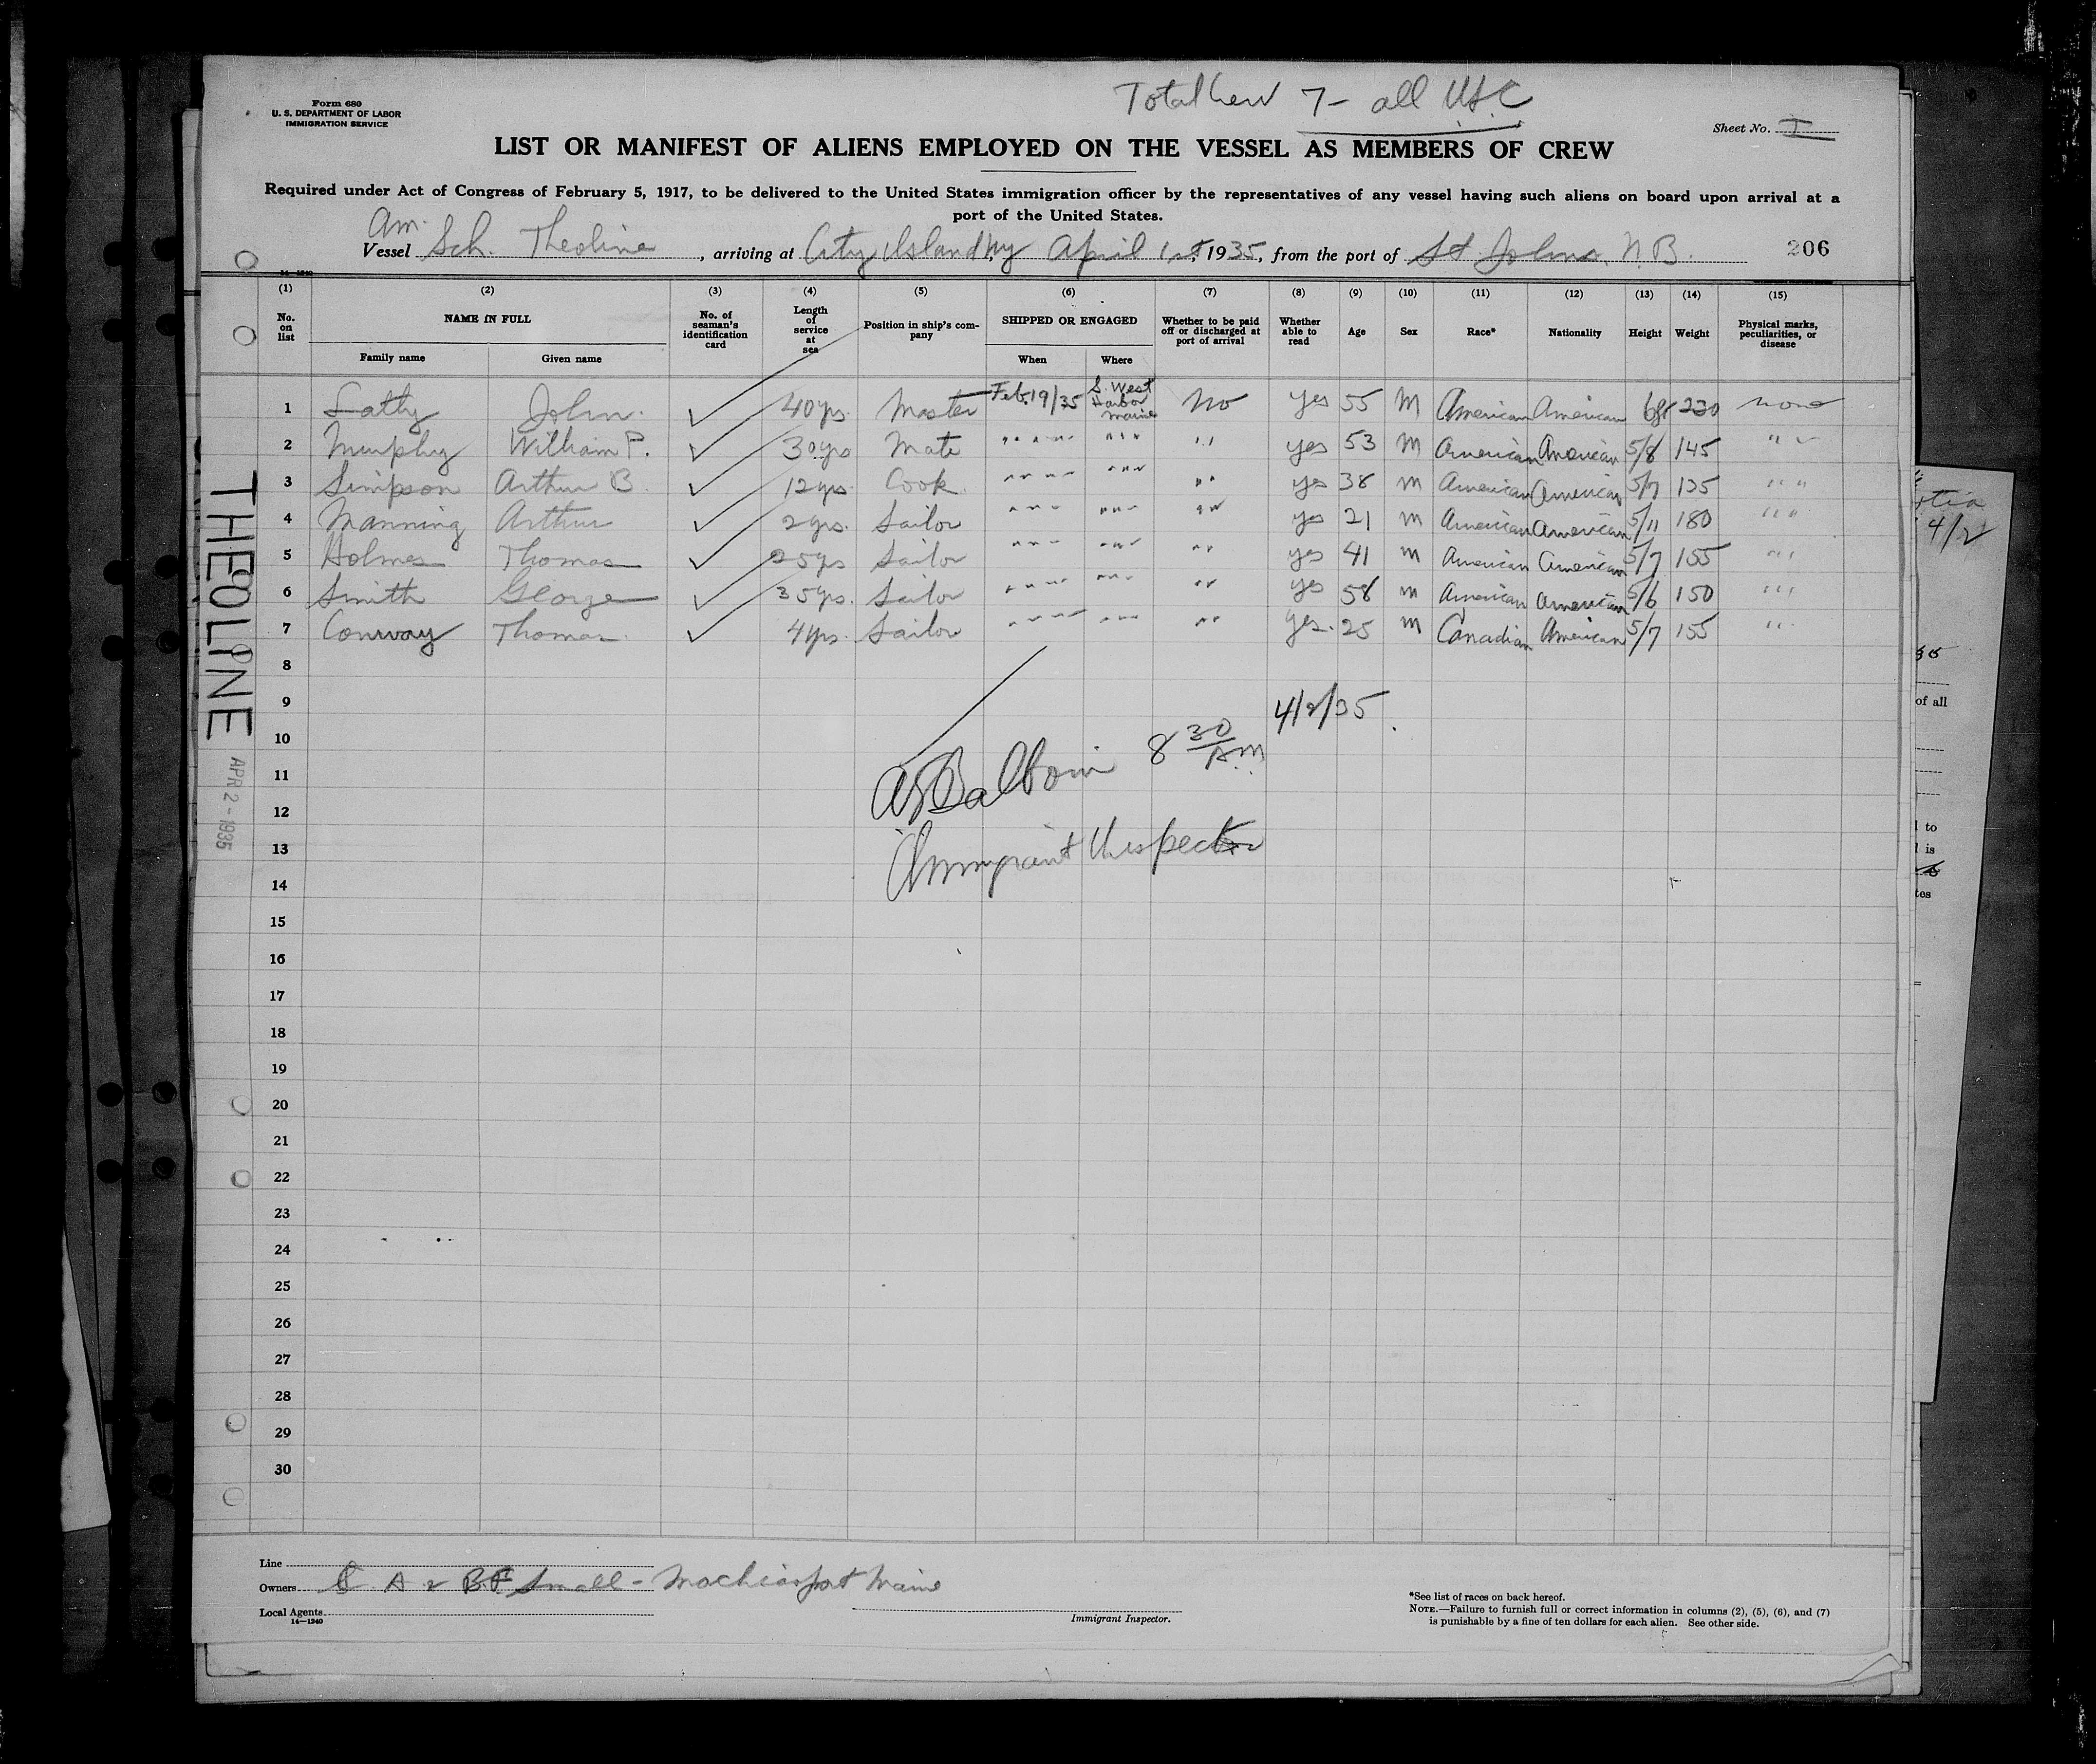 Total Crew 7 - all USC
Form 680
U. S. DEPARTMENT OF LABOR
IMMIGRATION SERVICE
Sheet No. I
LIST OR MANIFEST OF ALIENS EMPLOYED ON THE VESSEL AS MEMBERS OF CREW
Required under Act of Congress of February 5, 1917, to be delivered to the United States immigration officer by the representatives of any vessel having such aliens on board upon arrival at a
port of the United States.
Am.
Vessel Sch. Theoline, arriving at City Island NY April 1st, 1935, from the port of St Johns. N.B. 206
14-1240
(1) (2) (3) (4) (5) (6) (7) (8) (9) (10) (11) (12) (13) (14) (15)
No. on list NAME IN FULL No. of seaman's identification card Length of service at sea Position in ship's company SHIPPED OR ENGAGED Whether to be paid off or discharged at port of arrival Whether able to read Age Sex Race* Nationality Height Weight Physical marks, peculiarities, or disease
Family name Given name When Where
1 John. ✓ 40 yrs. Master Feb. 19/35 S. West Harbor Maine No yes 55 M American American 230 none
2 Murphy William P. ✓ 30 yrs Mate " " " " " " " " " yes 53 M American American 5/8 145 " " "
3 Simpson Arthur B. ✓ 12 yrs. Cook " " " " " " " " " yes 38 M American American 5/7 135 " " "
4 Manning Arthur ✓ 2 yrs. Sailor " " " " " " " " yes 21 M American American 5/11 180 " " "
5 Holmes Thomas ✓ 25 yrs Sailor " " " " " " " " yes 41 M American American 5/7 155 " " "
6 Smith George ✓ 35 yrs. Sailor " " " " " " " " " yes 58 M American American 5/6 150 " " "
7 Conway Thomas. ✓ 4 yrs. Sailor " " " " " " " " " yes. 25 M Canadian American 5/7 155 " "
8
9
4/2/35.
10
8 30 AM
11
12
13
Immigrant Inspector
14
15
16
17
18
19
20
21
22
23
24
25
26
27
28
29
30
THEOLINE
APR 2 - 1935
4/2
of all
to
is
tes
Line
Owners A & B.F Small - Machiasport Maine
Local Agents
14-1240
Immigrant Inspector.
*See list of races on back hereof.
NOTE.—Failure to furnish full or correct information in columns (2), (5), (6), and (7)
is punishable by a fine of ten dollars for each alien. See other side.